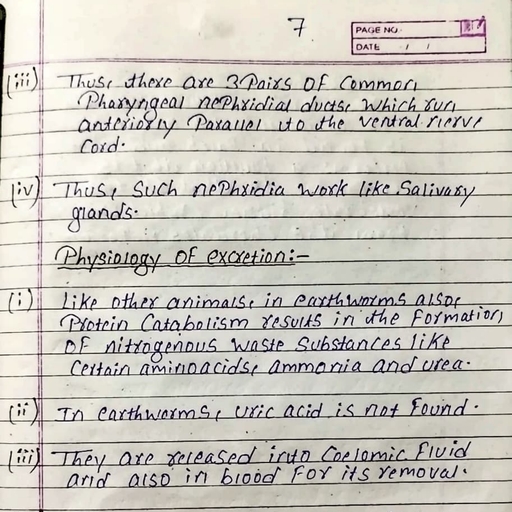 7
PAGE NO.
DATE / /
(iii) Thus, there are 3 Pairs of Common
Pharyngeal nephridial ducts, which run
anteriorly Parallel to the ventral nerve
Cord.
(iv) Thus, Such nephridia work like Salivary
glands.
Physiology of excretion:-
(i) Like other animals, in earthworms also,
Protein Catabolism results in the formation
of nitrogenous waste Substances like
Certain aminoacids, ammonia and urea.
(ii) In earthworms, uric acid is not found.
(iii) They are released into Coelomic fluid
and also in blood for its removal.